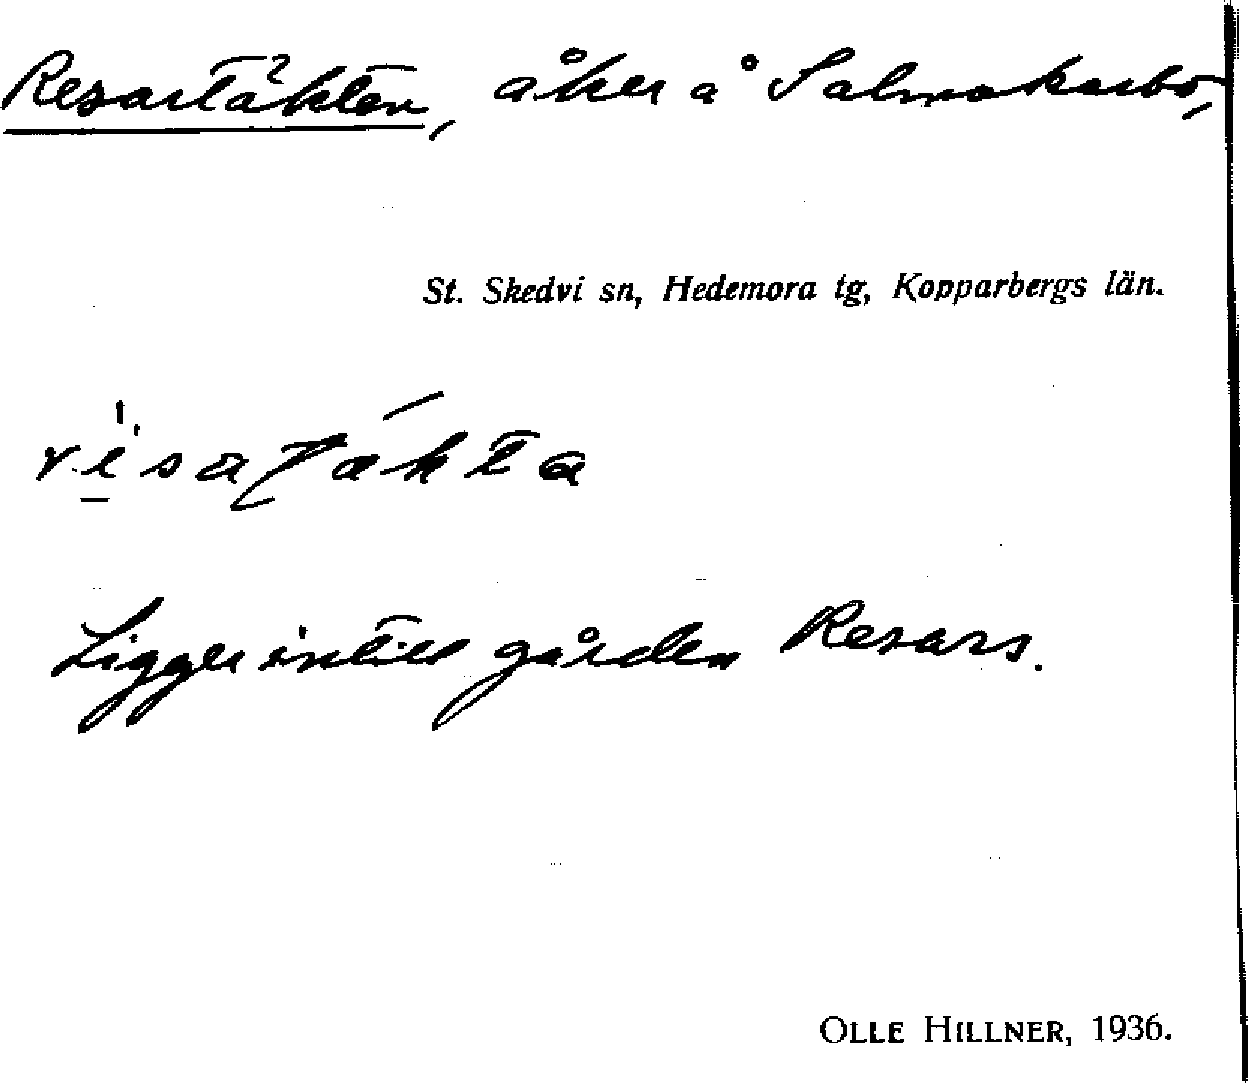 Resartäkten, åker å Salmakarbo,
St. Skedvi sn, Hedemora tg, Kopparbergs län.
Ligger intill gården Resars.
OLLE HILLNER, 1936.